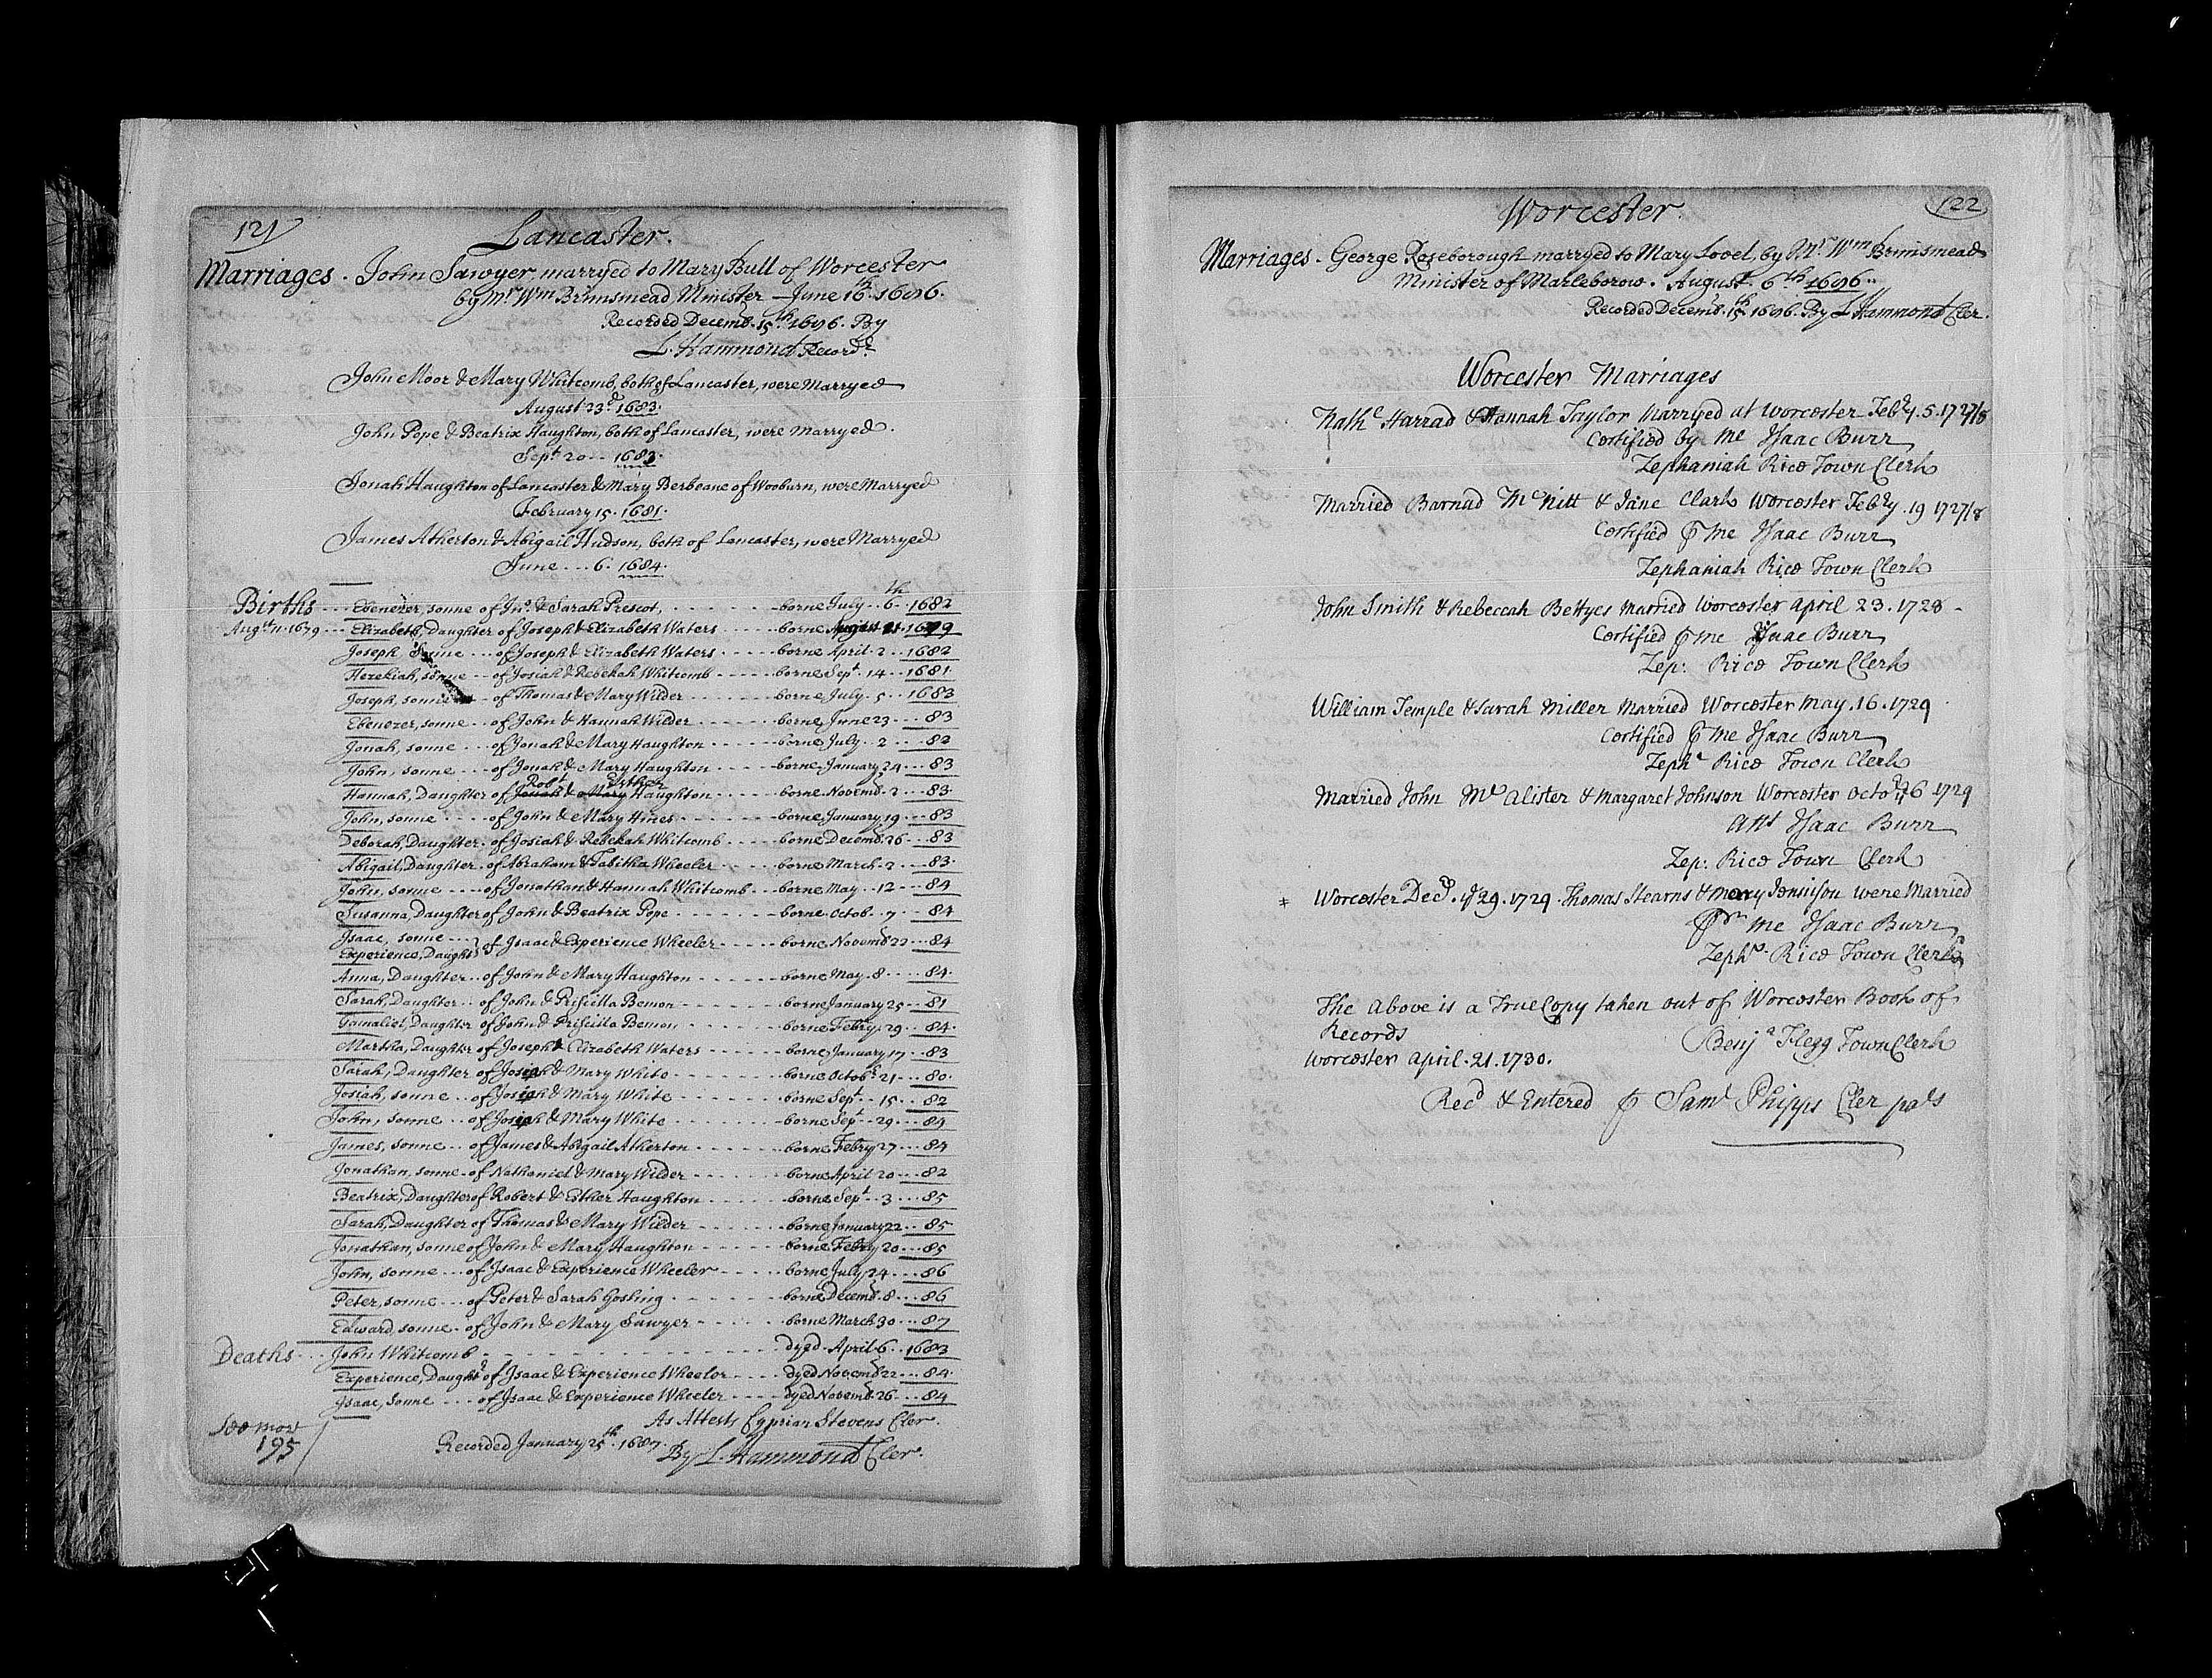 121
Lancaster.
Marriages. John Sawyer marryed to Mary Bull of Worcester
by Mr Wm Brinsmead Minister June 16th 1696.
Recorded Decemb. 15th 1696. By
L. Hammond Recordr
John Moor & Mary Whitcomb, both of Lancaster, were Marryed
August 23d 1683.
John Pope & Beatrix Haughton, both of Lancaster, were Marryed.
Sept 20 -- 1683.
Jonah Haughton of Lancaster & Mary Berbeane of Wooburn, were Marryed
February 15. 1681.
James Atherton & Abigail Hudson, both of Lancaster, were Marryed
June ... 6. 1684.
Births --- Ebenezer, sonne of Jno. & Sarah Prescot, ------ borne July .. 6th .. 1682
Augst 11. 1679 --- Elizabeth, Daughter of Joseph & Elizabeth Waters ---- borne August 21. 1679
Joseph Sonne --- of Joseph & Elizabeth Waters ---- borne April . 2 .. 1682
Hezekiah, sonne -- of Josiah & Rebekah Whitcomb ---- borne Sept. 14 .. 1681.
Joseph, sonne -- of Thomas & Mary Wilder ---- borne July . 5 .. 1683
Ebenezer, sonne --- of John & Hannah Wilder ---- borne June 23 --- 83
Jonah, sonne --- of Jonah & Mary Haughton ---- borne July .. 2 ... 82
John, sonne --- of Jonah & Mary Haughton ---- borne January 24 --- 83
Robt Esther
Hannah, Daughter of Jonah & Mary Haughton ---- borne Novemb. 2 --- 83.
John, sonne ---- of John & Mary Hines ---- borne January 19 --- 83
Deborah, Daughter . of Josiah & Rebekah Whitcomb ---- borne Decemb. 26 --- 83
Abigail, Daughter . of Abraham & Tabitha Wheeler ---- borne March . 2 --- 83.
John, sonne ---- of Jonathan & Hannah Whitcomb --- borne May .. 12 --- 84
Susanna, Daughter of John & Beatrix Pope ---- borne Octob. . 7 -- 84
Isaac, sonne ---
Experience, Daughtr } of Isaac & Experience Wheeler ---- borne Novemb 22 --- 84
Anna, Daughter .. of John & Mary Haughton ---- borne May . 8 ---- 84.
Sarah, Daughter .. of John & Priscilla Bemon ---- borne January 25 -- 81
Gamaliel, Daughter of John & Priscilla Bemon ---- borne Febry. 29 .. 84.
Martha, Daughter of Joseph & Elizabeth Waters ---- borne January 17 -- 83
Sarah, Daughter of Josiah & Mary White ---- borne Octobr 21 --- 80.
Josiah, sonne --- of Josiah & Mary White ---- borne Sept .. 15 .. 82
John, sonne --- of Josiah & Mary White ---- borne Sept .. 29 --- 84
James, sonne --- of James & Abigail Atherton ---- borne Febry 27 --- 84
Jonathan, sonne . of Nathaniel & Mary Wilder ---- borne April 20 --- 82
Beatrix, Daughter of Robert & Esther Haughton ---- borne Sept .. 3 --- 85
Sarah, Daughter of Thomas & Mary Wilder ---- borne January 22 .. 85
Jonathan, sonne of John & Mary Haughton ---- borne Febry 20 --- 85
John, sonne --- of Isaac & Experience Wheeler ---- borne July 24 --- 86
Peter, sonne --- of Peter & Sarah Gosling ---- borne Decemb. 8 --- 86
Edward, sonne . of John & Mary Sawyer ---- borne March 30 --- 87
Deaths --- John Whitcomb ---- dyed . April . 6 .. 1683
Experience, Daughtr of Isaac & Experience Wheeler ---- dyed Novemb 22 --- 84.
Isaac, Sonne --- of Isaac & Experience Wheeler ---- dyed Novemb. 26 --- 84
As Attests Cyprian Stevens Cler.
See more
195
Recorded January 25th. 1687. By L. Hammond Cler.
122
Worcester.
Marriages. George Roseborough marryed to Mary Lovel, by Mr. Wm Brinsmead
Minister of Marleborow. August. 6th 1696.
Recorded Decemb. 15th 1696. By L Hammond Cler.
Worcester Marriages
Nathl Harrad & Hannah Taylor Marryed at Worcester Febry. 5. 1727/8
Certified by Me Isaac Burr
Zephaniah Rice Town Clerk
Married Barnad McNitt & Jane Clark Worcester Febry. 19 1727/8
Certified ⅌ me Isaac Burr
Zephaniah Rice Town Clerk
John Smith & Rebeccah Bettyes Married Worcester April 23. 1728 -
Certified ⅌ me Isaac Burr
Zep: Rice Town Clerk
William Temple & Sarah Miller Married Worcester May. 16. 1729
Certified ⅌ me Isaac Burr
Zeph. Rice Town Clerk
Married John McAlister & Margaret Johnson Worcester Octor 26 1729
Attt Isaac Burr
Zep: Rice Town Clerk
‡ Worcester Decr. ye 29. 1729. Thomas Stearns & Mary Jennison were Married
⅌ me Isaac Burr
Zeph. Rice Town Clerk
The Above is a True Copy taken out of Worcester Book of
Records
Benja Flegg Town Clerk
Worcester April. 21. 1730.
Recd & Entered ⅌ Saml Phipps Cler pacis